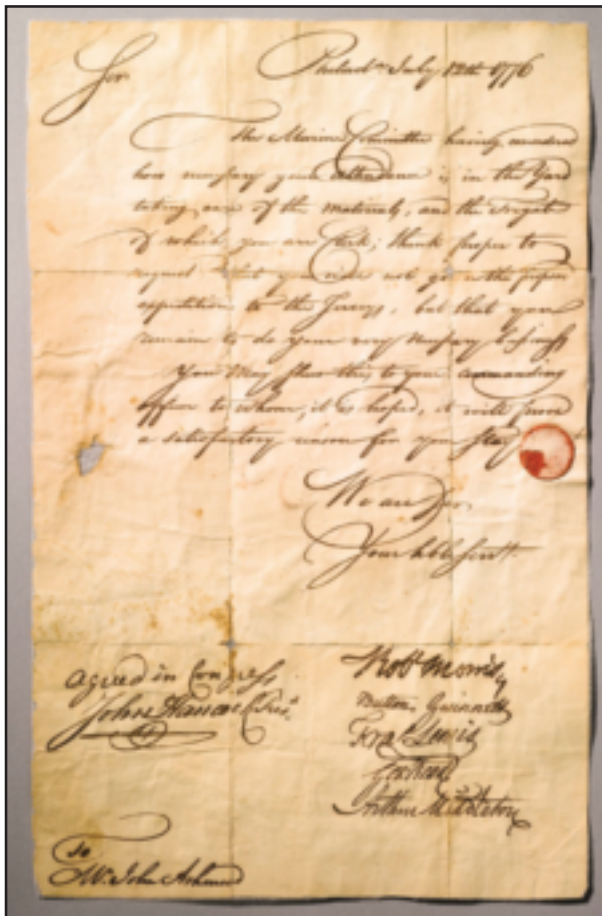 Philada July 12th 1776
Sir
The Marine Committee having considered
how necessary your attendance is in the Yard
taking care of the materials, and the Frigate
of which you are Clerk; think proper to
request that you will not go on the
expedition to the Jerseys, but that you
remain to do your very necessary business
You May shew this to your commanding
officer to whom, it is hoped, it will prove
a satisfactory reason for your stay
We are Sir
Your hble Servts
agreed in Congress
John Hancock Prest
Robt Morris
Button Gwinnett
Fras Lewis
Geo Read
Arthur Middleton
To
Mr. John Ashmead